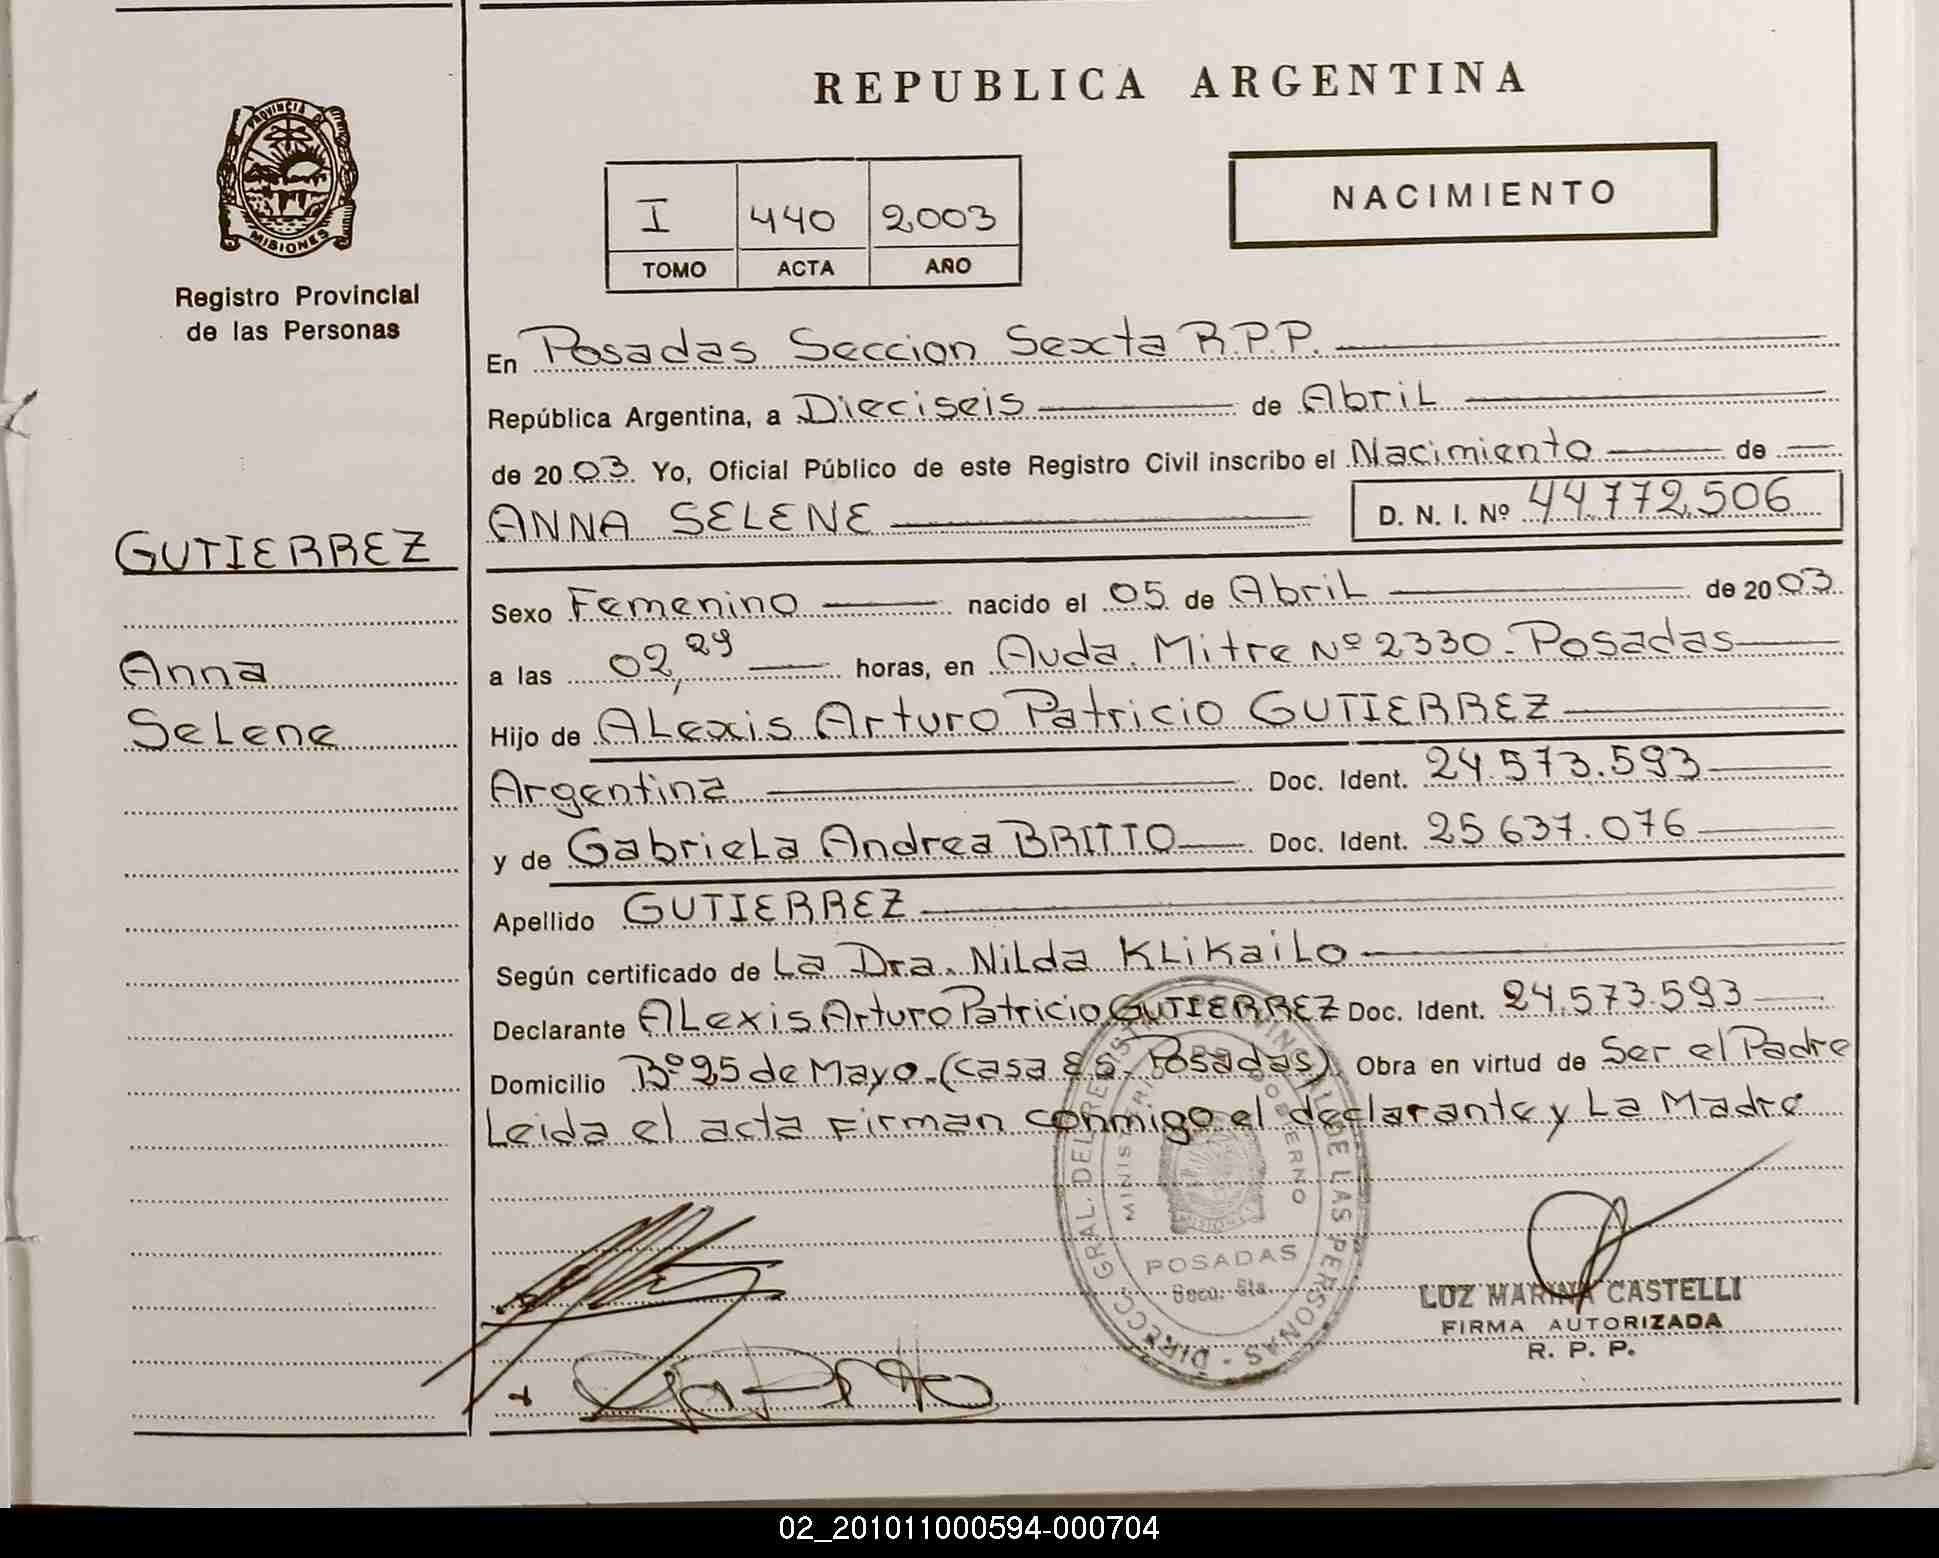 REPUBLICA ARGENTINA
PROVINCIA DE
MISIONES
Registro Provincial
de las Personas
NACIMIENTO
I 440 2003
TOMO ACTA AÑO
En Posadas Seccion Sexta R.P.P.
República Argentina, a Dieciseis de Abril
de 2003. Yo, Oficial Público de este Registro Civil inscribo el Nacimiento de
ANNA SELENE D. N. I. Nº 44.772.506
GUTIERREZ
Anna
Selene
Sexo Femenino nacido el 05 de Abril de 2003
a las 02,29 horas, en Avda. Mitre Nº 2330. Posadas
Hijo de Alexis Arturo Patricio GUTIERREZ
Argentina Doc. Ident. 24.573.593
y de Gabriela Andrea BRITTO Doc. Ident. 25 637.076
Apellido GUTIERREZ
Según certificado de La Dra. Nilda Klikailo
Declarante Alexis Arturo Patricio GUTIERREZ Doc. Ident. 24.573.593
Domicilio Bº 25 de Mayo (casa Posadas). Obra en virtud de Ser el Padre
Leida el acta Firman conmigo el declarante y La Madre
DIRECC. GRAL. DEL REGIST. DE LAS PERSONAS
MINISTERIO GOBIERNO
MISIONES
POSADAS
Secc. 6ta
LUZ MARINA CASTELLI
FIRMA AUTORIZADA
R. P. P.
02_201011000594-000704